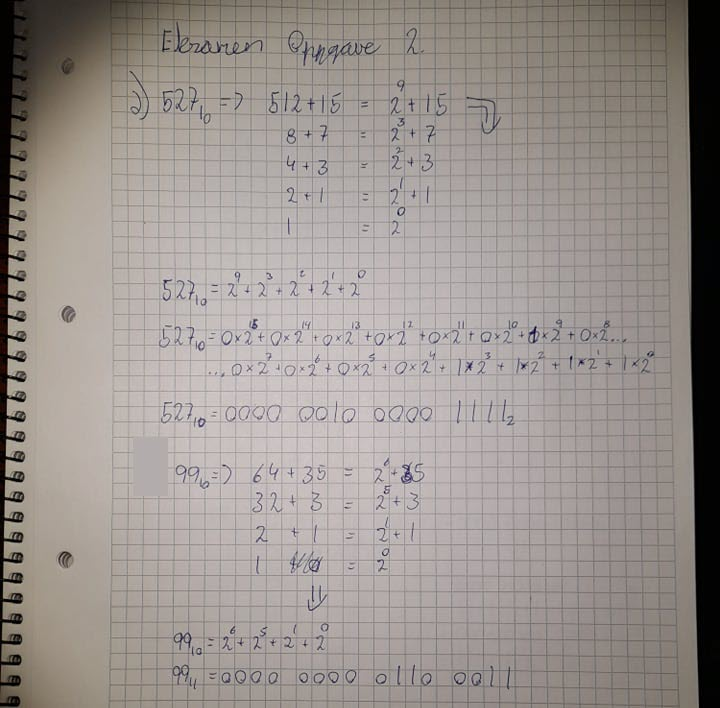 Eksamen Oppgave 2.
a) 527₁₀ => 512+15 = 2⁹+15
8+7 = 2³+7
4+3 = 2²+3
2+1 = 2¹+1
1 = 2⁰
527₁₀ = 2⁹+2³+2²+2¹+2⁰
527₁₀ = 0×2¹⁵+0×2¹⁴+0×2¹³+0×2¹²+0×2¹¹+0×2¹⁰+1×2⁹+0×2⁸...
...0×2⁷+0×2⁶+0×2⁵+0×2⁴+1×2³+1×2²+1×2¹+1×2⁰
527₁₀ = 0000 0010 0000 1111₂
99₁₀ => 64+35 = 2⁶+35
32+3 = 2⁵+3
2+1 = 2¹+1
1 = 2⁰
99₁₀ = 2⁶+2⁵+2¹+2⁰
99₁₁ = 0000 0000 0110 0011